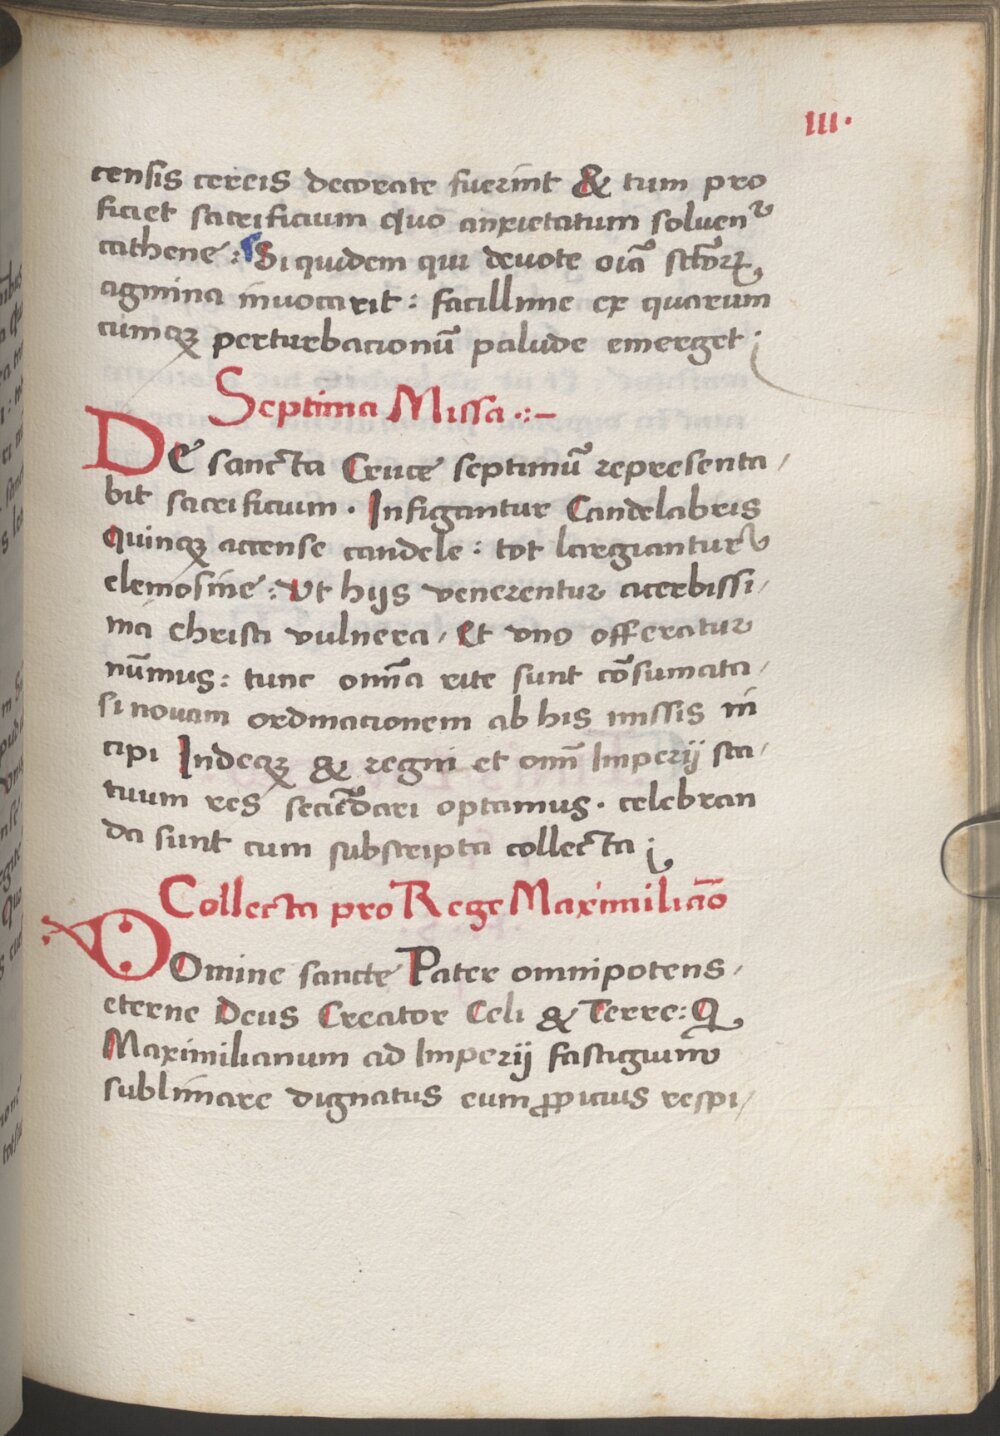 III.
censis cereis decorate fuerint & tum pro
ficiet sacrificium quo anxietatum soluenᷣ
cathene : Si quidem qui deuote oīa sctōrꝝ
agmina inuocarit : facillime ex quarum
cumqꝫ perturbacionū palude emerget ;
Septima Missa .:-
De sancta Cruce septimū representa /
bit sacrificium . Infigantur Candelabris
Quinqꝫ accense candele : tot largiantur
elemosine : Ut hijs venerentur acerbissi /
ma christi vulnera / Et vno offeratur
nūmus : tunc omīa rite sunt cōsumata /
si nouam ordinacionem ab his missis in
cipi Indeqꝫ & regni et omī Imperij sta /
tuum res secūdari optamus . celebran
da sunt cum subscripta collecta ;
Collecta pro Rege Maximiliāo
DOmine sancte Pater omnipotens /
eterne Deus Creator Celi & Terre : Q
Maximilianum ad Imperij fastigium
sublimare dignatus eum ꝓpicius respi /